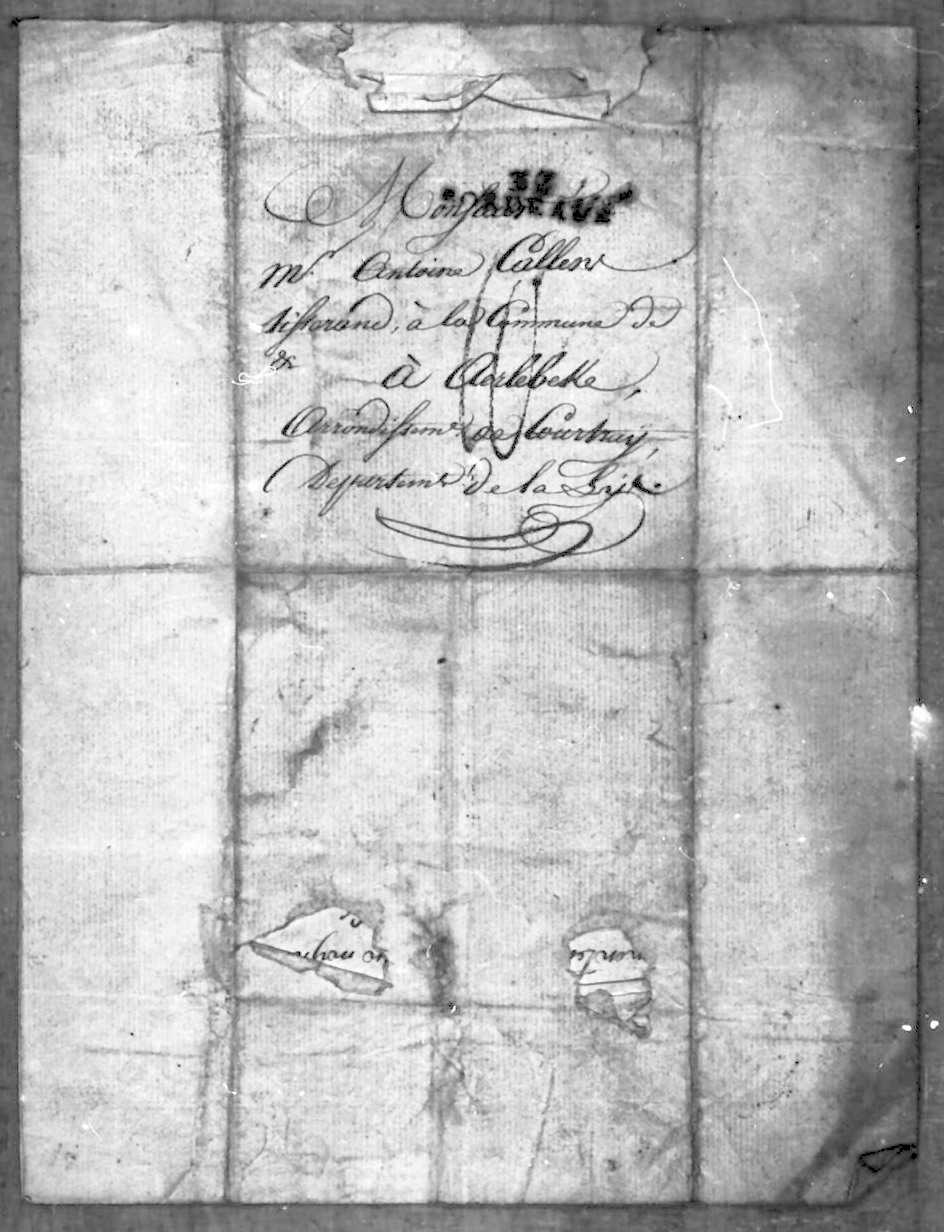 32
BORDEAUX
Monsieur
Mr. Antoine Callens
tisserand, à la Commune de
&
à Aerlebeke,
Arrondissemt. de Courtray,
Departemt. de la Lys